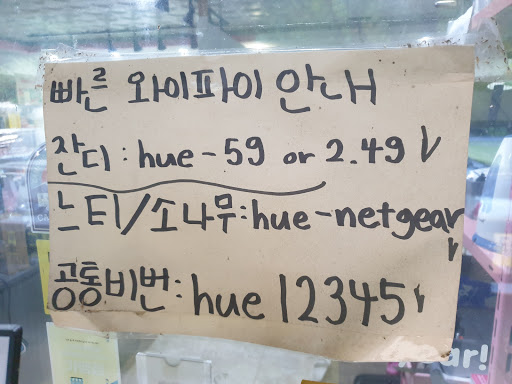 빠른 와이파이 안내
잔디: hue-5g or 2.4g √
느티/소나무:hue-netgear √
공통비번: hue12345 √